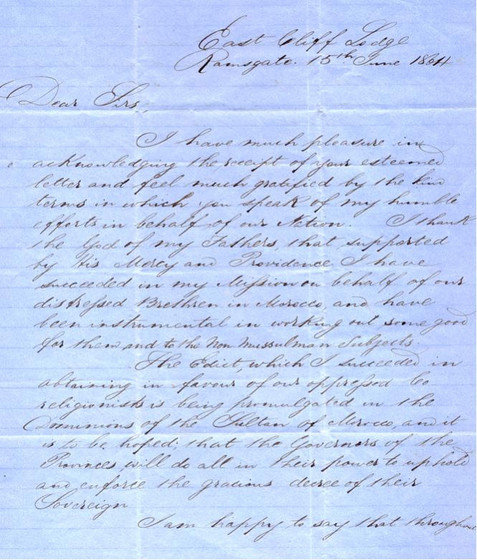 East Cliff Lodge
Ramsgate. 15th June 1864
Dear Sirs,
I have much pleasure in
acknowledging the receipt of your esteemed
letter and feel much gratified by the kin
terms in which you speak of my humble
efforts in behalf of our Nation. I thank
the God of my Fathers that supported
by His Mercy and Providence I have
succeeded in my Mission on behalf of our
distressed Brethren in Morocco, and have
been instrumental in working out some good
for them and to the Non Mussulman Subjects.
The Edict, which I succeeded in
obtaining in favour of our oppressed Co
religionists is being promulgated in the
Dominions of the Sultan of Morocco, and it
is to be hoped that the Governors of the
Provinces will do all in their power to uphold
and enforce the gracious decree of their
Sovereign
I am happy to say that throughout